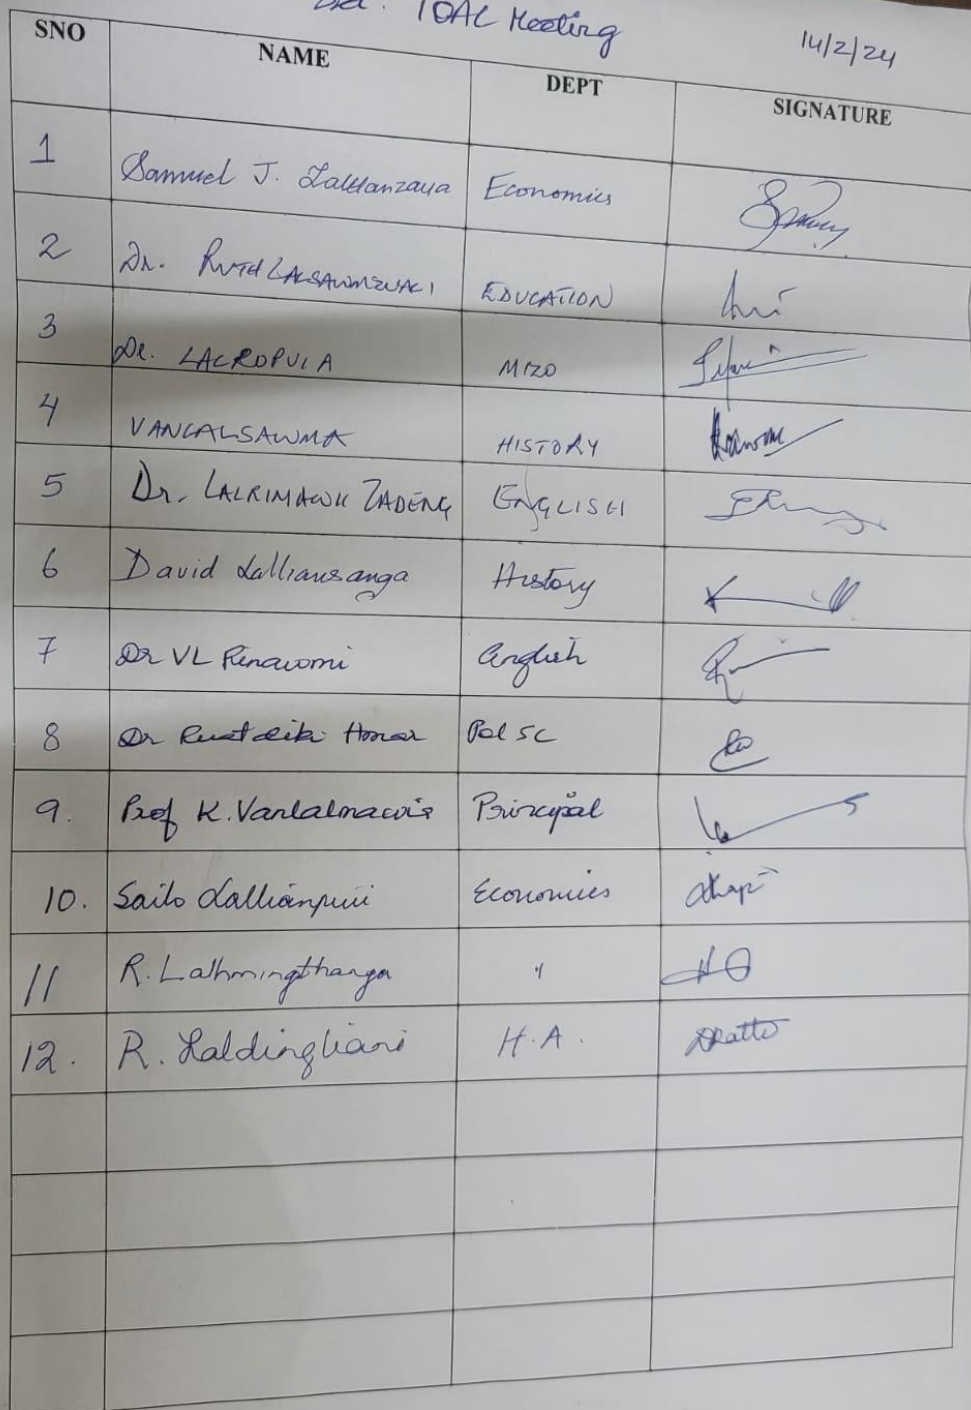 IQAC Meeting
14/2/24
SNO NAME DEPT SIGNATURE
1 Samuel J. Lalhlanzaua Economics
2 Dr. RUTH LALSAWMZUALI EDUCATION
3 Dr. LALROPUIA MIZO
4 VANLALSAWMA HISTORY
5 Dr. LALRIMAWII ZADENG ENGLISH
6 David Lalliansanga History
7 Dr VL Renawmi English
8 Dr Pol Sc
9. Prof K. Vanlalmawia Principal
10. Sailo Lallianpuii Economics
11 R. Lalhmingthanga "
12. R. Laldingliani H.A.